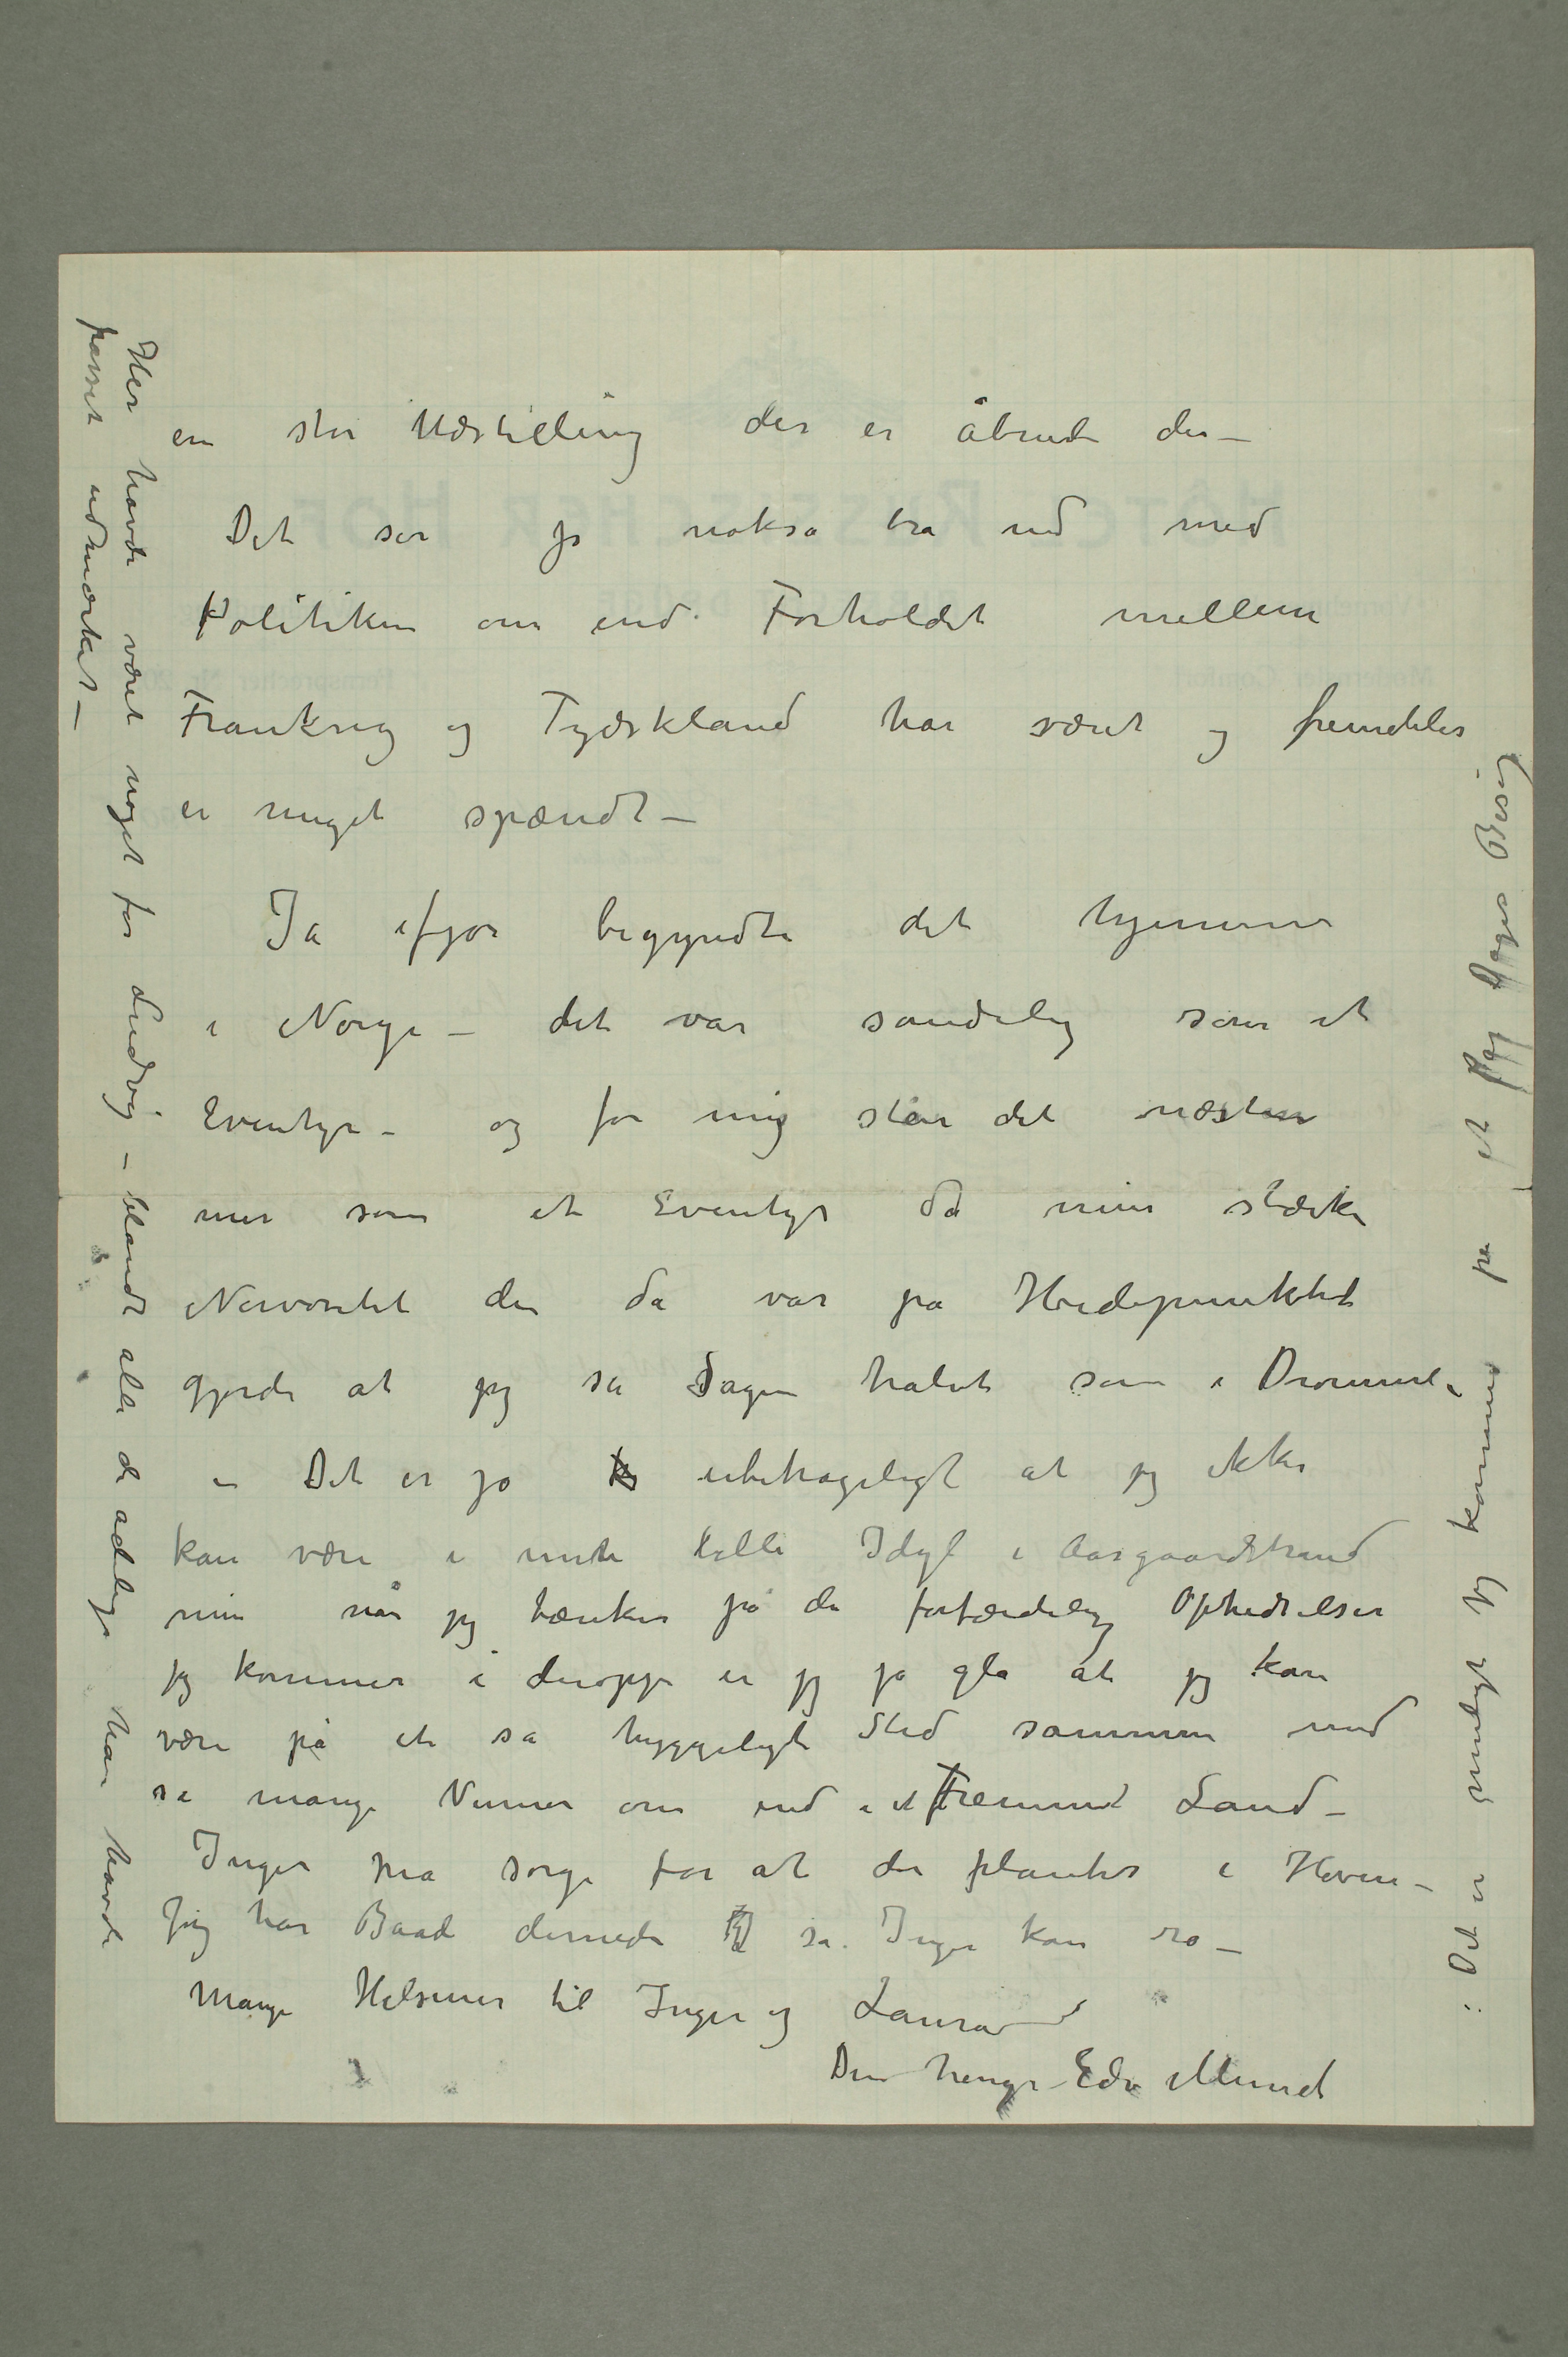 en stor Udstilling der er åbnet der –
Det ser jo nokså bra ud med
Politiken om end Forholdet mellem
Frankrig og Tydskland har været og fremdeles
er meget spændt –
Ja ifjor begyndte det hjemme
i Norge – det var sandelig som et
Eventyr – og for mig står det næsten
mer som et Eventyr da min stærke
Nervøsitet der da var på Høidepunktet
gjorde at jeg så Sagen halvt som i Drømme –
– Det er jo ubehageligt at jeg ikke
kan være i mit lille Idyl i Aasgaardstrand
men når jeg tænker på de forfærdelige Ophidselser
jeg kommer i deroppe er jeg jo gla at jeg kan
være på et så hyggeligt Sted sammen med
så mange Venner om end i et Fremmed Land –
Inger må sørge for at der plantes i Haven –
Jeg har Baad dernede så Inger kan ro –
Mange Hilsener til Inger og Laura
Din hengi Edv Munch
Her havde været noget for Ludvig – blandt alle de adelige han havde
passet udmærket –
: Det er muligt jeg kommer på et Dages Besøg